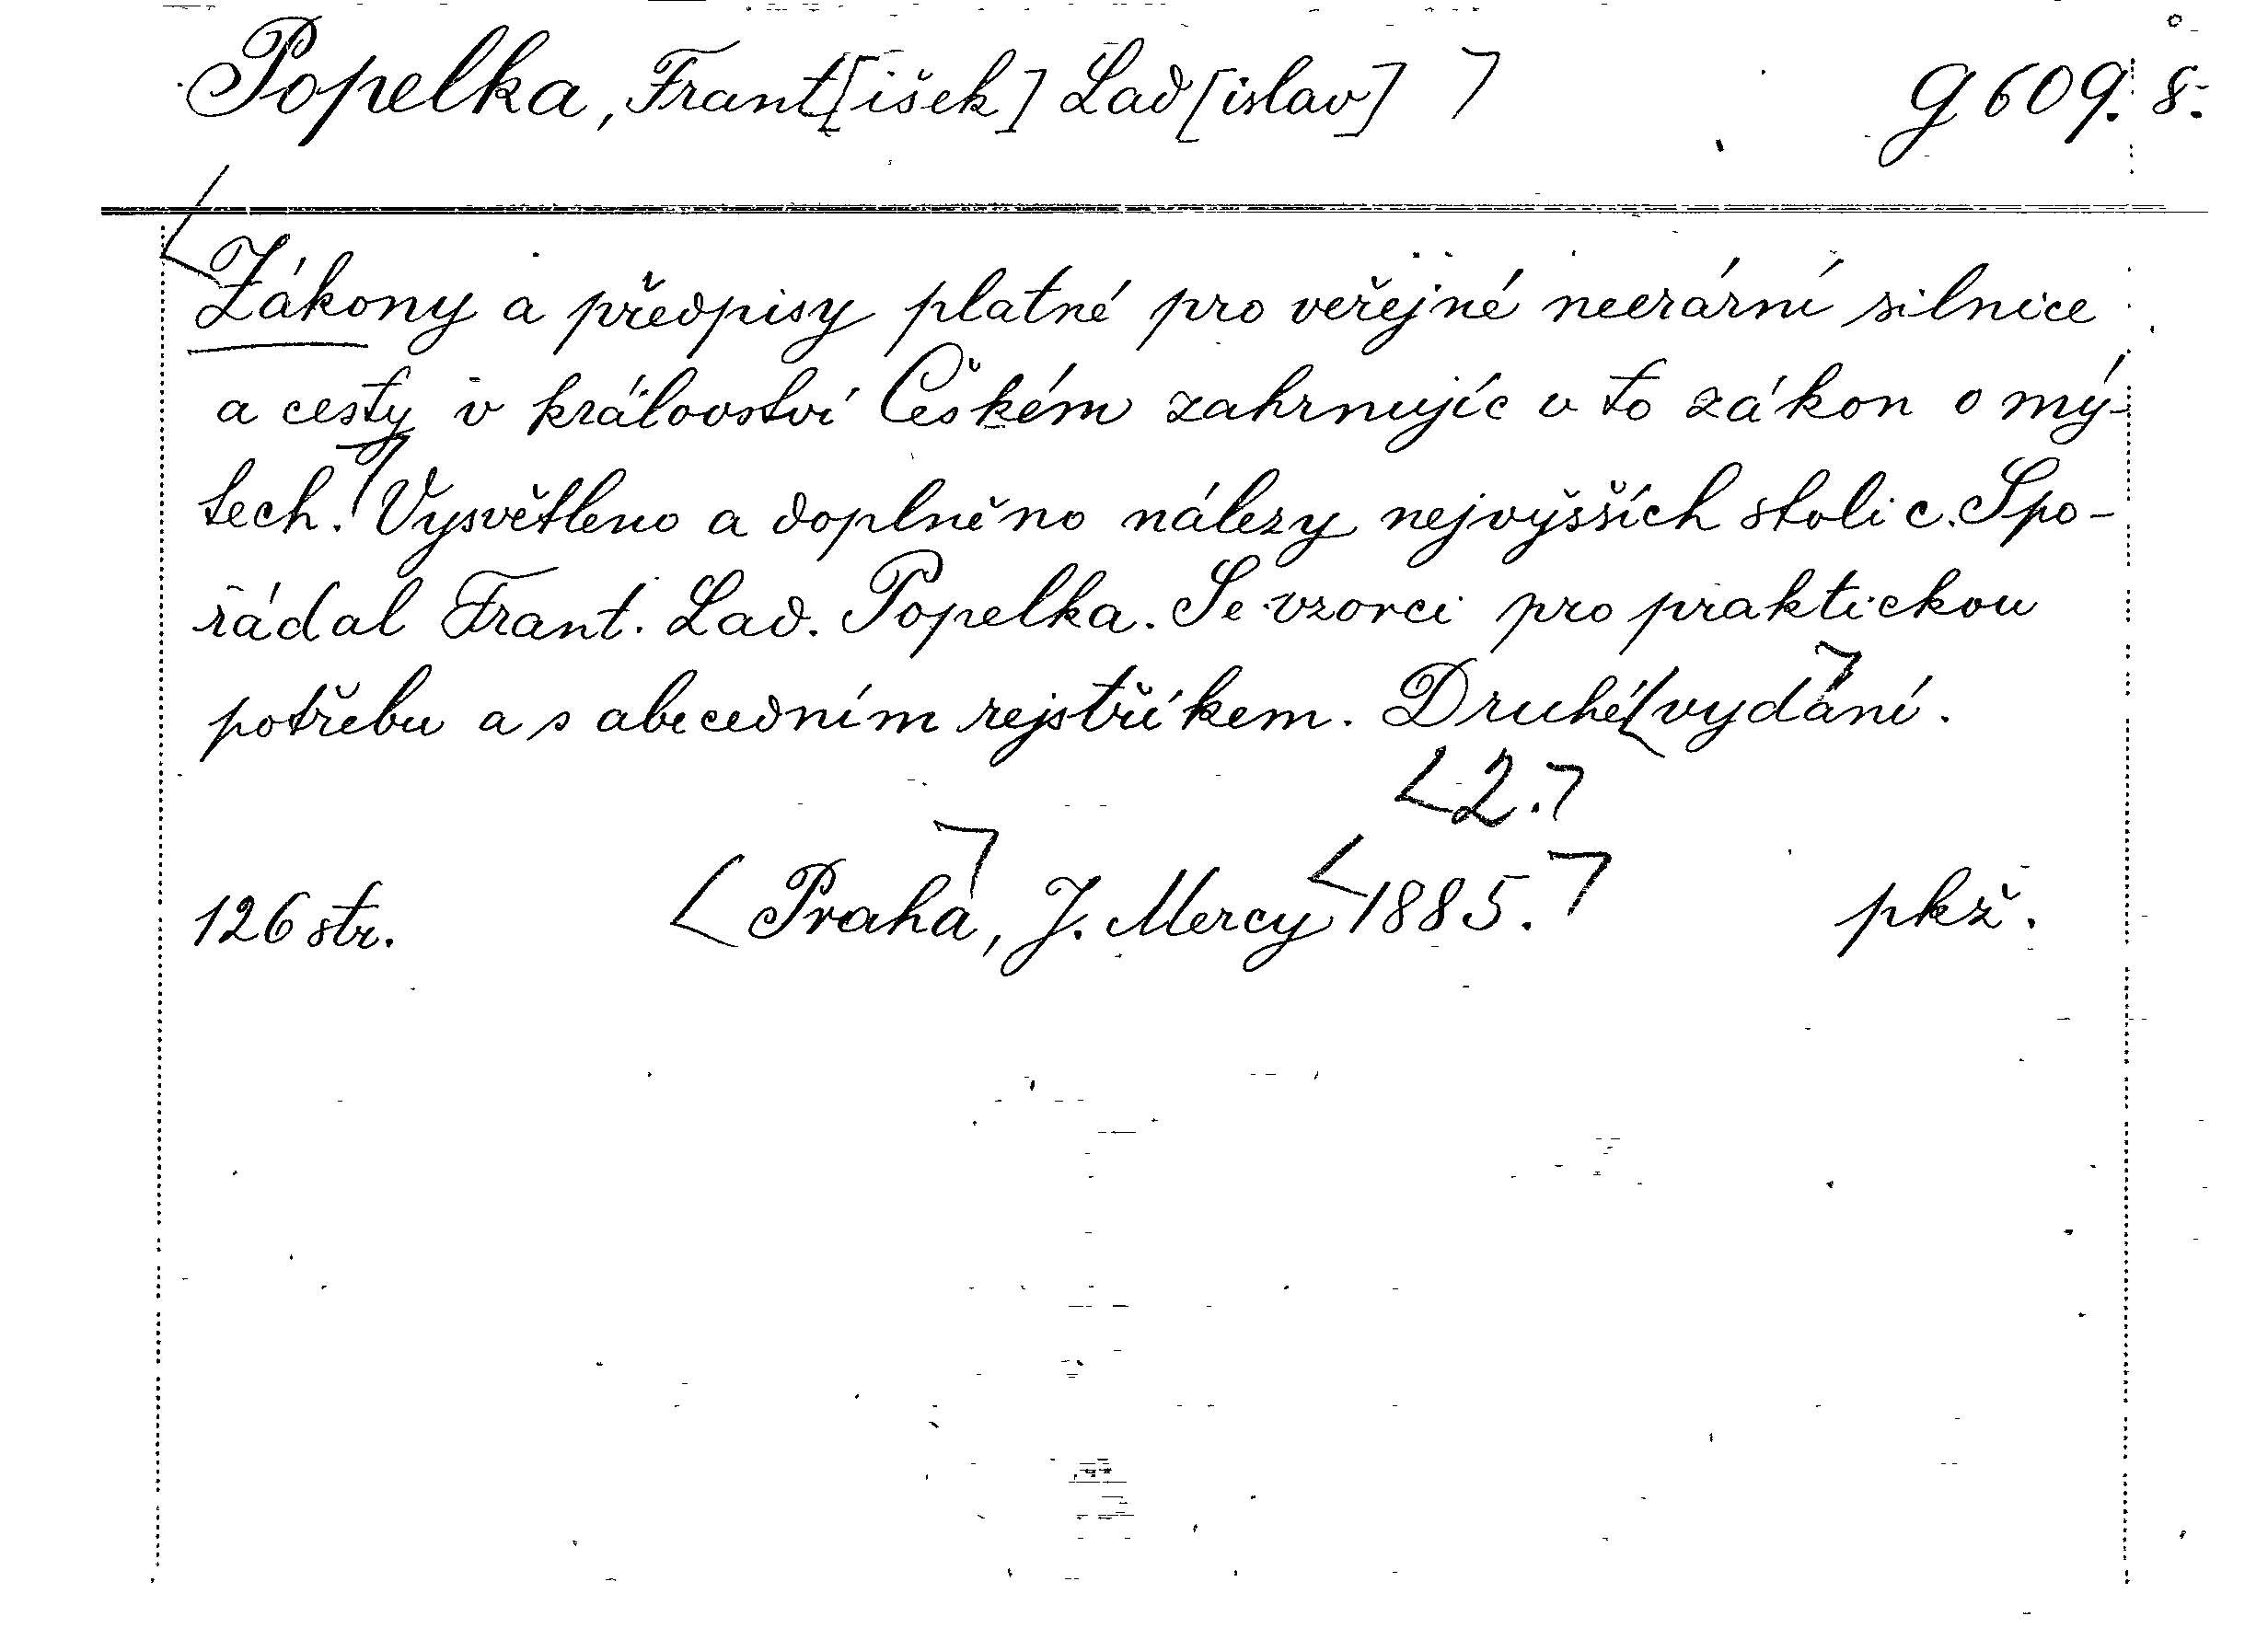 Popelka, Frant[išek] Lad[islav] g 609. 8.
Zákony a předpisy platné pro veřejné neerární silnice
a cesty v královstvi Českém zahrnujíc v to zákon o mý-
tech. Vysvětleno a doplněno nálezy nejvyšších stolic. Spo-
řádal Frant. Lad. Popelka. Se vzorci pro praktickou
potřebu a s abecedním rejstříkem. Druhé vydání.
2.
126 str. Praha, J. Mercy 1885. pkž.